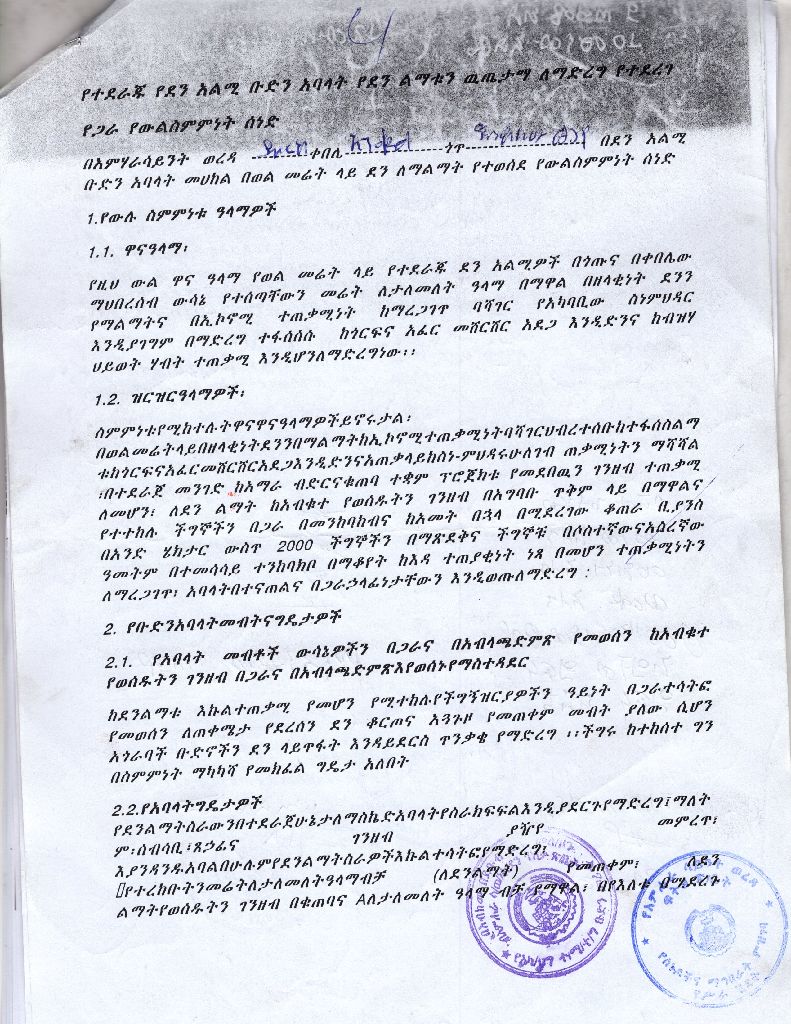 የተደራጁ የደን አልሚ ቡድን አባላት የደን ልማቱን ዉጤታማ ለማድረግ የተደረገ
የጋራ የውልስምምነት ሰነድ
በአምሃራሳይንት ወረዳ ቀበሌ ጎጥ በደን አልሚ
ቡድን አባላት መሀከል በወል መሬት ላይ ደን ለማልማት የተወሰደ የውልስምምነት ሰነድ
1.የውሉ ስምምነቱ ዓላማዎች
1.1. ዋናዓላማ፡
የዚህ ውል ዋና ዓላማ የወል መሬት ላይ የተደራጁ ደን አልሚዎች በጎጡና በቀበሌው
ማህበረሰብ ውሳኔ የተሰጣቸውን መሬት ለታለመለት ዓላማ በማዋል በዘላቂነት ደንን
የማልማትና በኢኮኖሚ ተጠቃሚነት ከማረጋገጥ ባሻገር የአካባቢው ስነምህዳር
እንዲያገግም በማድረግ ተፋሰሰሱ ከጎርፍና አፈር መሸርሸር አደጋ እንዲድንና ከብዝሃ
ህይወት ሃብት ተጠቃሚ እንዲሆንለማድረግነው፡፡
1.2. ዝርዝርዓላማዎች፡
ስምምነቱየሚከተሉትዋናዋናዓላማዎችይኖሩታል፡
በወልመሬትላይበዘላቂነትደንንበማልማትከኢኮኖሚተጠቃሚነትባሻገርህብረተሰቡከተፋሰስልማ
ቱከጎርፍናአፈርመሸርሸርአደጋእንዲድንናአጠቃላይከስነ-ምህዳሩሁለገብ ጠቃሚነትን ማሻሻል
፡በተደራጀ መንገድ ከአማራ ብድርናቁጠባ ተቋም ፕሮጀክቱ የመደበዉን ገንዘብ ተጠቃሚ
ለመሆን፤ ለደን ልማት ከአብቁተ የወሰዱትን ገንዘብ በአግባቡ ጥቅም ላይ በማዋልና
የተተከሉ ችግኞችን በጋራ በመንከባከብና ከአመት በኋላ በሚደረገው ቆጠራ ቢያንስ
በአንድ ሄክታር ውስጥ 2000 ችግኞችን በማጽደቅና ችግኞቹ በሶስተኛውናአስረኛው
ዓመትም በተመሳሳይ ተንከባክቦ በማቆየት ከእዳ ተጠያቂነት ነጻ በመሆን ተጠቃሚነትን
ለማረጋገጥ፣ አባላትበተናጠልና በጋራኃላፊነታቸውን እንዲወጡለማድረግ፡
2. የቡድንአባላትመብትናግዴታዎች
2.1. የአባላት መብቶች ውሳኔዎችን በጋራና በአብላጫድምጽ የመወሰን ከአብቁተ
የወሰዱትን ገንዘብ በጋራና በአብላጫድምጽእየወሰኑየማስተዳደር
ከደንልማቱ እኩልተጠቃሚ የመሆን የሚተከሉየችግኝዝርያዎችን ዓይነት በጋራተሳትፎ
የመወሰን ለጠቀሜታ የደረሰን ደን ቆርጦና አጓጉዞ የመጠቀም መብት ያለው ሲሆን
አጎራባች ቡድኖችን ደን ላይጥፋት እንዳይደርስ ጥንቃቄ የማድረግ ፡፡ችግሩ ከተከሰተ ግን
በስምምነት ማካካሻ የመክፈል ግዴታ አለበት
2.2.የአባላትግዴታዎች
የደንልማትስራውንበተደራጀሁኔታለማስኬድአባላትየስራክፍፍልእንዲያደርጉየማድረግ፤ማለት
ም፡ሰብሳቢ፣ጸኃፊና ገንዘብ ያዥየ መምረጥ፣
እያንዳንዱአባልበሁሉምየደንልማትስራዎችእኩልተሳትፎየማድረግ፣
የተረከቡትንመሬትለታለመለትዓላማብቻ (ለደንልማት) የመጠቀም፣ ለደን
ልማትየወሰዱትን ገንዘብ በቁጠባና Aለታለመለት ዓላማ ብቻ የማዋል፣ በየእለቱ በሚደረጉ